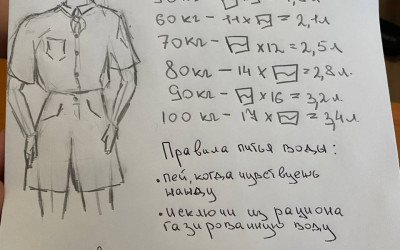 60 кг - 11 x = 2,1 л
70 кг - x 12 = 2,5 л
80 кг - 14 x = 2,8 л.
90 кг - x 16 = 3,2 л
100 кг - 17 x = 3,4 л
Правила питья воды:
• пей, когда чувствуешь
жажду
• исключи из рациона
газированную воду